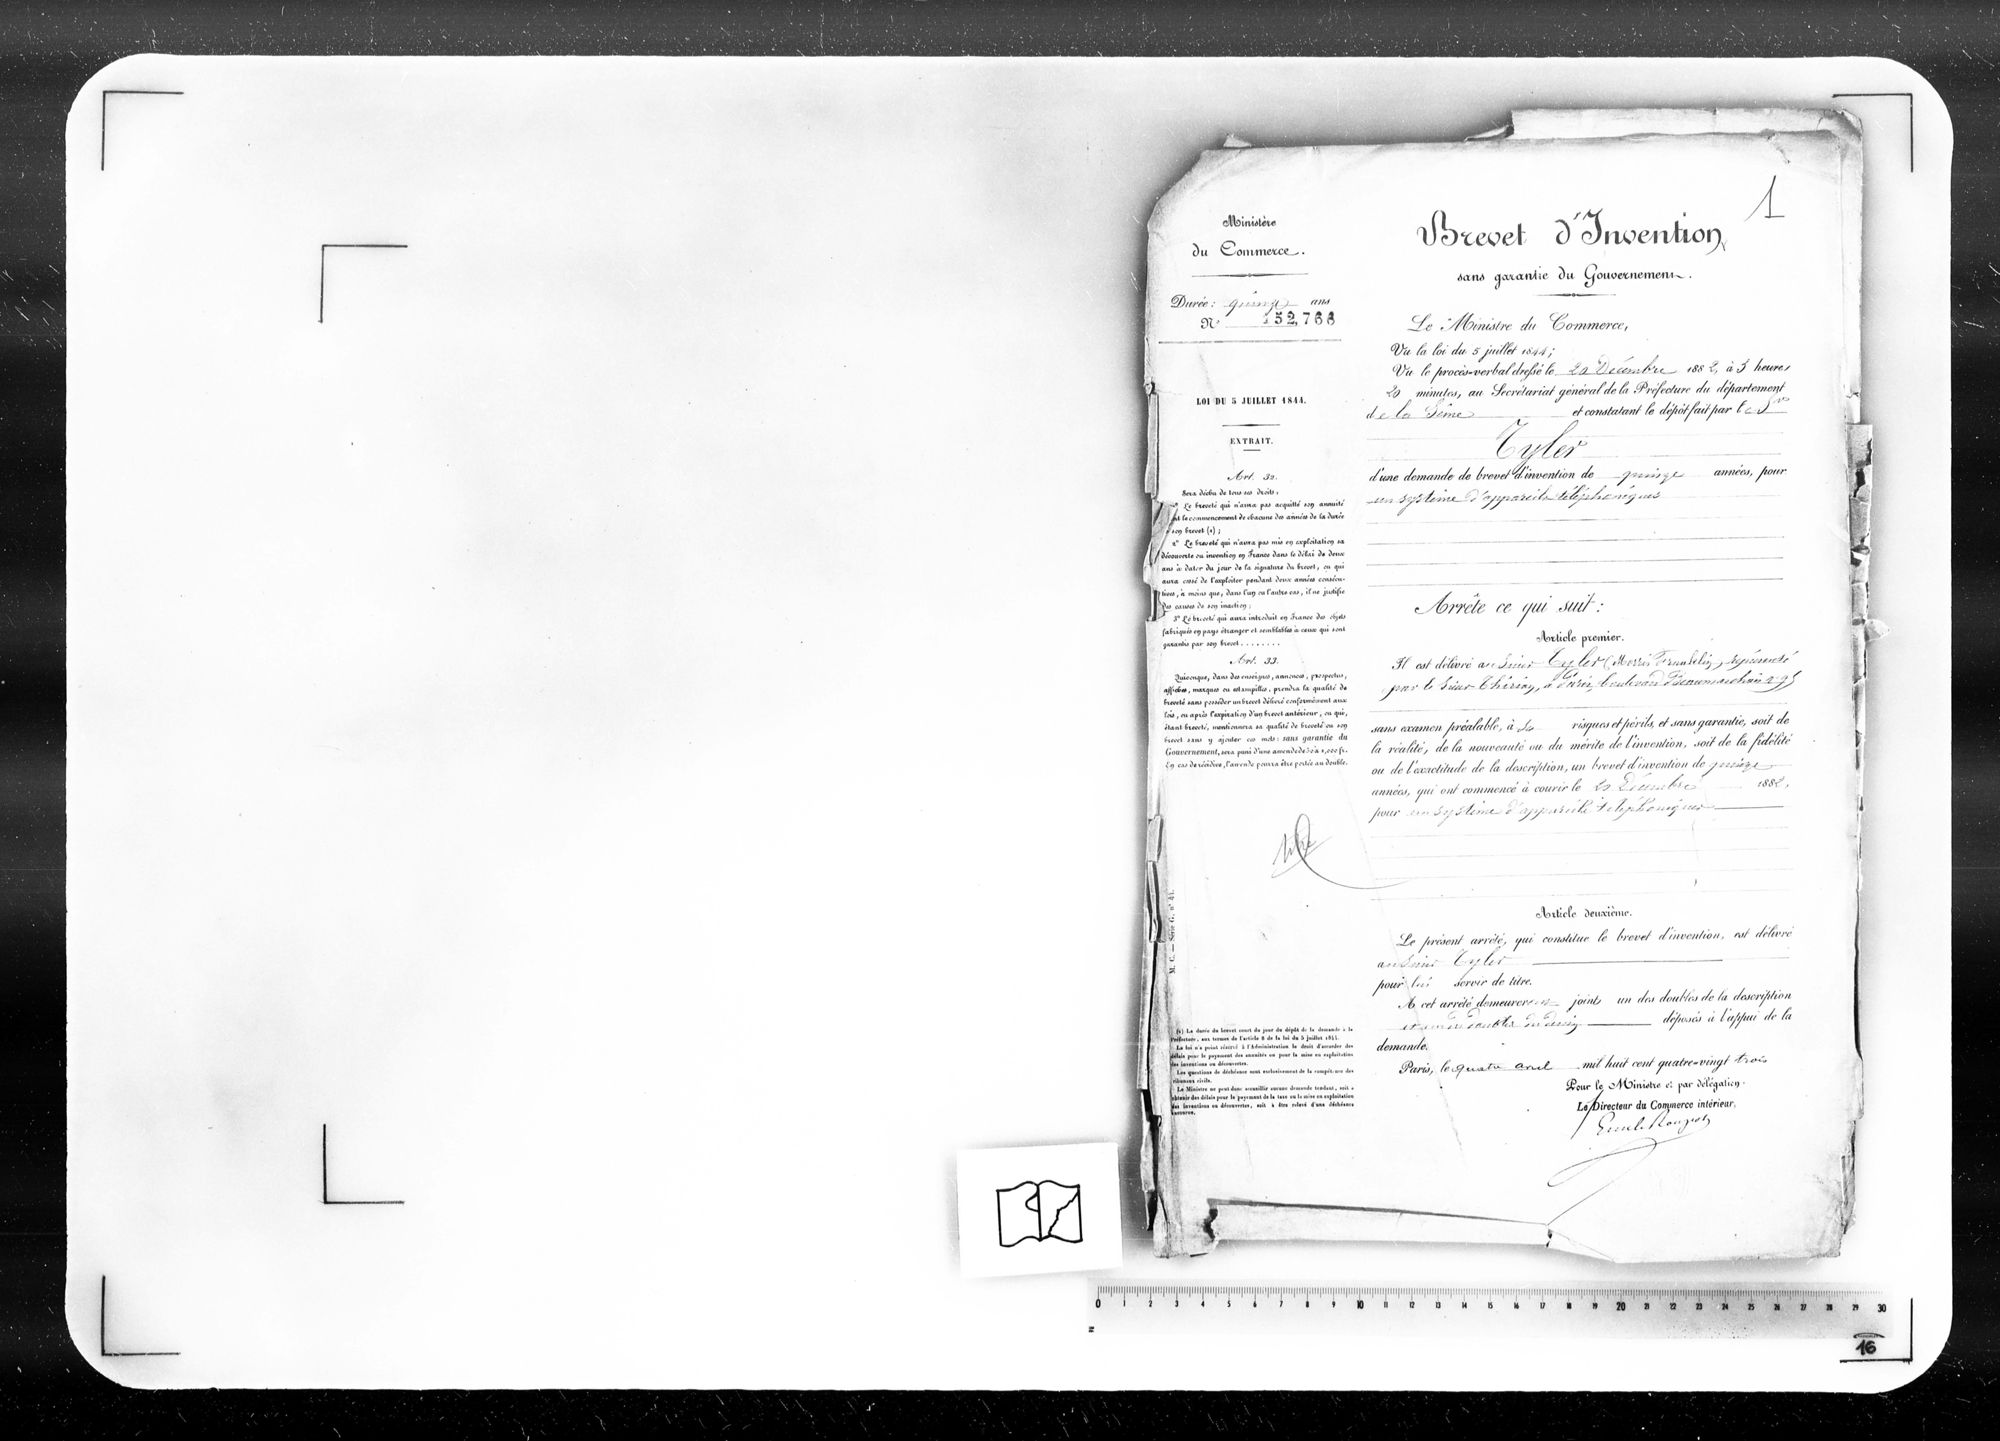 1
Ministère
du Commerce.
Durée : quinze ans
N° 152,766
LOI DU 5 JUILLET 1844.
EXTRAIT.
Art. 32.
Sera déchu de tous ses droits :
1° Le breveté qui n'aura pas acquitté son annuité
avant le commencement de chacune des années de la durée
de son brevet (1) ;
2° Le breveté qui n'aura pas mis en exploitation sa
découverte ou invention en France dans le délai de deux
ans à dater du jour de la signature du brevet, ou qui
aura cessé de l'exploiter pendant deux années consécu-
tives, à moins que, dans l'un ou l'autre cas, il ne justifie
des causes de son inaction ;
3° Le breveté qui aura introduit en France des objets
fabriqués en pays étranger et semblables à ceux qui sont
garantis par son brevet ........
Art. 33.
Quiconque, dans des enseignes, annonces, prospectus,
affiches, marques ou estampilles, prendra la qualité de
breveté sans posséder un brevet délivré conformément aux
lois, ou après l'expiration d'un brevet antérieur, ou qui,
étant breveté, mentionnera sa qualité de breveté ou son
brevet sans y ajouter ces mots : sans garantie du
Gouvernement, sera puni d'une amende de 50 à 1,000 fr.
En cas de récidive, l'amende pourra être portée au double.
M. C. — Série G. n° 41.
(1) La durée du brevet court du jour du dépôt de la demande à la
Préfecture, aux termes de l'article 8 de la loi du 5 juillet 1844.
La loi n'a point réservé à l'Administration le droit d'accorder des
délais pour le payement des annuités ou pour la mise en exploitation
des inventions ou découvertes.
Les questions de déchéance sont exclusivement de la compétence des
tribunaux civils.
Le Ministre ne peut donc accueillir aucune demande tendant, soit à
obtenir des délais pour le payement de la taxe ou la mise en exploitation
des inventions ou découvertes, soit à être relevé d'une déchéance
encourue.
Brevet d'Invention
sans garantie du Gouvernement.
Le Ministre du Commerce,
Vu la loi du 5 juillet 1844 ;
Vu le procès-verbal dressé le 20 Décembre 1882, à 3 heures
20 minutes, au Secrétariat général de la Préfecture du département
de la Seine et constatant le dépôt fait par le Sr
Tyler
d'une demande de brevet d'invention de quinze années, pour
un système d'appareils téléphoniques
Arrête ce qui suit :
Article premier.
Il est délivré au Sieur Tyler (Morris Franklin), représenté
par le Sieur Thirion, à Paris, boulevard Beaumarchais n° 95
sans examen préalable, à ses risques et périls, et sans garantie, soit de
la réalité, de la nouveauté ou du mérite de l'invention, soit de la fidélité
ou de l'exactitude de la description, un brevet d'invention de quinze
années, qui ont commencé à courir le 20 Décembre 1882,
pour un système d'appareils téléphoniques
Article deuxième.
Le présent arrêté, qui constitue le brevet d'invention, est délivré
au Sieur Tyler
pour lui servir de titre.
A cet arrêté demeureront joints un des doubles de la description
et un des doubles du dessin déposés à l'appui de la
demande.
Paris, le quatre avril mil huit cent quatre-vingt trois
Pour le Ministre et par délégation.
Le Directeur du Commerce intérieur,
0 1 2 3 4 5 6 7 8 9 10 11 12 13 14 15 16 17 18 19 20 21 22 23 24 25 26 27 28 29 30
16